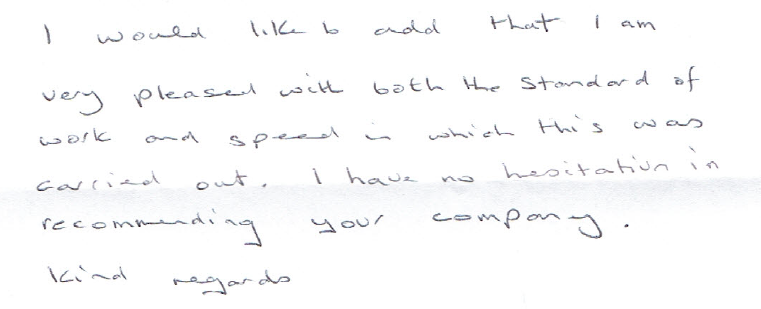 I would like to add that I am
very pleased with both the standard of
work and speed in which this was
carried out. I have no hesitation in
recommending your company.
Kind regards